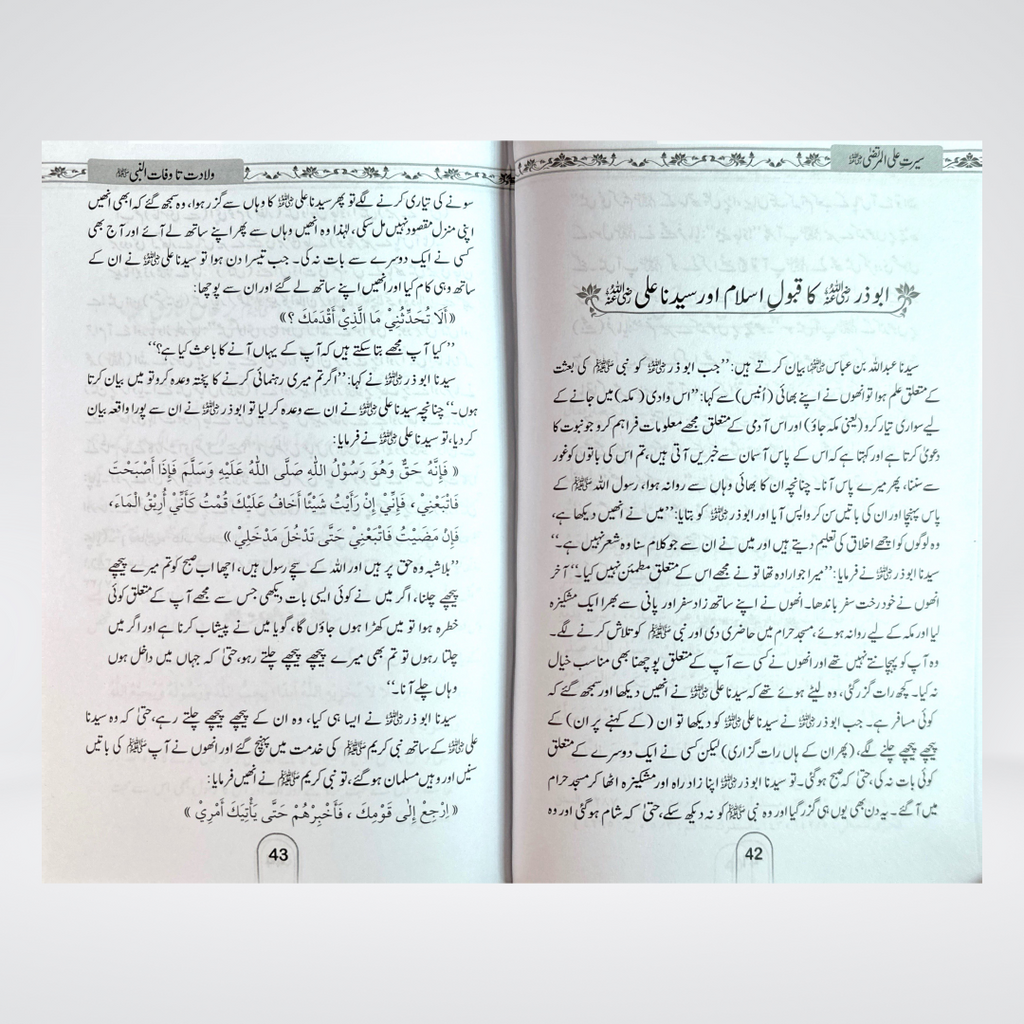 سیرتِ علی المرتضیٰ ﷛
ابوذر ﷛ کا قبولِ اسلام اور سیدنا علی ﷛
سیدنا عبداللہ بن عباس ﷠ بیان کرتے ہیں: ’’جب ابوذر ﷛ کو نبی ﷺ کی بعثت
کے متعلق علم ہوا تو انھوں نے اپنے بھائی (اُنَیس) سے کہا: ’’اس وادی (مکہ) میں جانے کے
لیے سواری تیار کرو (یعنی مکہ جاؤ) اور اس آدمی کے متعلق مجھے معلومات فراہم کرو جو نبوت کا
دعویٰ کرتا ہے اور کہتا ہے کہ اس کے پاس آسمان سے خبریں آتی ہیں، تم اس کی باتوں کو غور
سے سننا، پھر میرے پاس آنا۔ چنانچہ ان کا بھائی وہاں سے روانہ ہوا، رسول اللہ ﷺ کے
پاس پہنچا اور ان کی باتیں سن کر واپس آیا اور ابوذر ﷛ کو بتایا: ’’میں نے انھیں دیکھا ہے،
وہ لوگوں کو اچھے اخلاق کی تعلیم دیتے ہیں اور میں نے ان سے جو کلام سنا وہ شعر نہیں ہے۔‘‘
سیدنا ابوذر ﷛ نے فرمایا: ’’میرا جو ارادہ تھا تو نے مجھے اس کے متعلق مطمئن نہیں کیا۔‘‘ آخر
انھوں نے خود رخت سفر باندھا۔ انھوں نے اپنے ساتھ زاد سفر اور پانی سے بھرا ایک مشکیزہ
لیا اور مکہ کے لیے روانہ ہوئے، مسجد حرام میں حاضری دی اور نبی ﷺ کو تلاش کرنے لگے۔
وہ آپ کو پہچانتے نہیں تھے اور انھوں نے کسی سے آپ کے متعلق پوچھنا بھی مناسب خیال
نہ کیا۔ کچھ رات گزر گئی، وہ لیٹے ہوئے تھے کہ سیدنا علی ﷛ نے انھیں دیکھا اور سمجھ گئے کہ
کوئی مسافر ہے۔ جب ابوذر ﷛ نے سیدنا علی ﷛ کو دیکھا تو ان (کے کہنے پر ان) کے
پیچھے پیچھے چلنے لگے، (پھر ان کے ہاں رات گزاری) لیکن کسی نے ایک دوسرے کے متعلق
کوئی بات نہ کی، حتیٰ کہ صبح ہو گئی۔ تو سیدنا ابوذر ﷛ اپنا زاد راہ اور مشکیزہ اٹھا کر مسجد حرام
میں آ گئے۔ یہ دن بھی یوں ہی گزر گیا اور وہ نبی ﷺ کو نہ دیکھ سکے، حتیٰ کہ شام ہو گئی اور وہ
42
ولادت تا وفات النبی ﷺ
سونے کی تیاری کرنے لگے تو پھر سیدنا علی ﷛ کا وہاں سے گزر ہوا، وہ سمجھ گئے کہ ابھی انھیں
اپنی منزل مقصود نہیں مل سکی، لہٰذا وہ انھیں وہاں سے پھر اپنے ساتھ لے آئے اور آج بھی
کسی نے ایک دوسرے سے بات نہ کی۔ جب تیسرا دن ہوا تو سیدنا علی ﷛ نے ان کے
ساتھ وہی کام کیا اور انھیں اپنے ساتھ لے گئے اور ان سے پوچھا:
«أَلَا تُحَدِّثُنِيْ مَا الَّذِيْ أَقْدَمَكَ ؟»
’’کیا آپ مجھے بتا سکتے ہیں کہ آپ کے یہاں آنے کا باعث کیا ہے؟‘‘
سیدنا ابوذر ﷛ نے کہا: ’’اگر تم میری رہنمائی کرنے کا پختہ وعدہ کرو تو میں بیان کرتا
ہوں۔‘‘ چنانچہ سیدنا علی ﷛ نے ان سے وعدہ کر لیا تو ابوذر ﷛ نے ان سے پورا واقعہ بیان
کر دیا، تو سیدنا علی ﷛ نے فرمایا:
«فَإِنَّهُ حَقٌّ وَهُوَ رَسُوْلُ اللّٰهِ صَلَّى اللّٰهُ عَلَيْهِ وَسَلَّمَ فَإِذَا أَصْبَحْتَ
فَاتْبَعْنِيْ ، فَإِنِّيْ إِنْ رَأَيْتُ شَيْئًا أَخَافُ عَلَيْكَ قُمْتُ كَأَنِّيْ أُرِيْقُ الْمَاءَ،
فَإِنْ مَضَيْتُ فَاتَّبِعْنِيْ حَتَّى تَدْخُلَ مَدْخَلِيْ»
’’بلاشبہ وہ حق پر ہیں اور اللہ کے سچے رسول ہیں، اچھا اب صبح کو تم میرے پیچھے
پیچھے چلنا، اگر میں نے کوئی ایسی بات دیکھی جس سے مجھے آپ کے متعلق کوئی
خطرہ ہوا تو میں کھڑا ہوں جاؤں گا، گویا میں نے پیشاب کرنا ہے اور اگر میں
چلتا رہوں تو تم بھی میرے پیچھے پیچھے چلتے رہو، حتیٰ کہ جہاں میں داخل ہوں
وہاں چلے آنا۔‘‘
سیدنا ابوذر ﷛ نے ایسا ہی کیا، وہ ان کے پیچھے پیچھے چلتے رہے، حتیٰ کہ وہ سیدنا
علی ﷛ کے ساتھ نبی کریم ﷺ کی خدمت میں پہنچ گئے اور انھوں نے آپ ﷺ کی باتیں
سنیں اور وہیں مسلمان ہو گئے، تو نبی کریم ﷺ نے انھیں فرمایا:
«اِرْجِعْ إِلٰى قَوْمِكَ ، فَأَخْبِرْهُمْ حَتَّى يَأْتِيَكَ أَمْرِيْ»
43